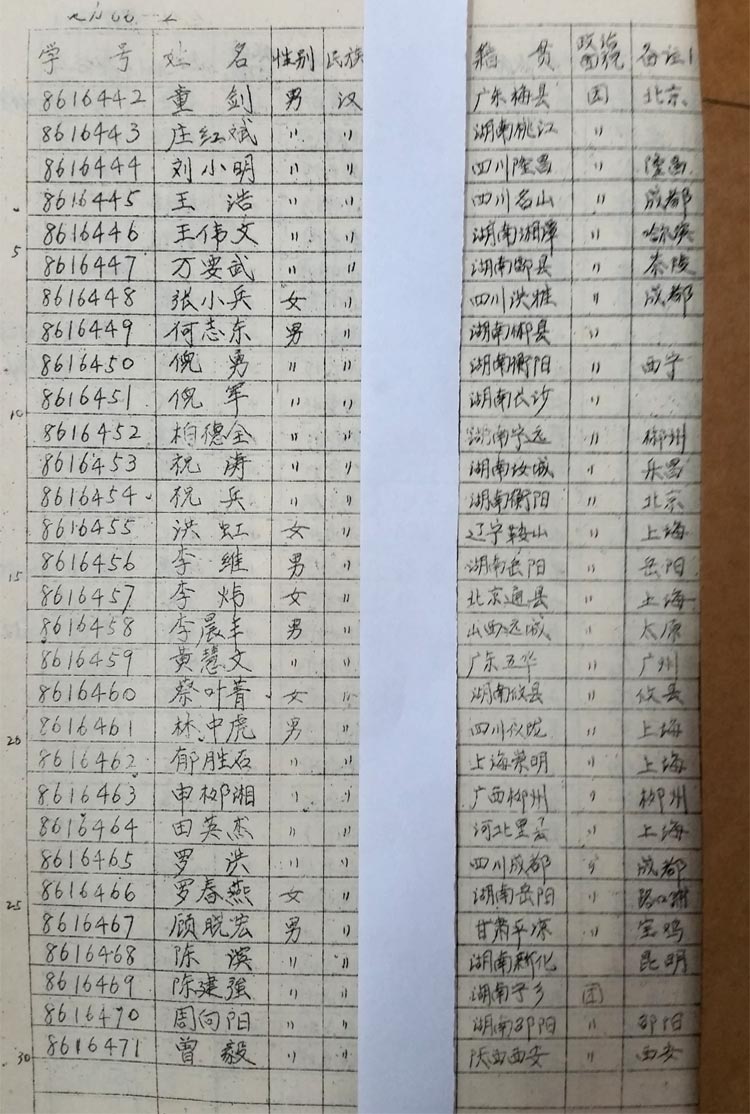 学号 姓名 性别 民族 籍贯 政治面貌 备注
8616442 童剑 男 汉 广东梅县 团 北京
8616443 庄红斌 〃 〃 湖南桃江 〃
8616444 刘小明 〃 〃 四川隆昌 〃 隆昌
8616445 王浩 〃 〃 四川名山 〃 成都
5 8616446 王伟文 〃 〃 湖南湘潭 〃 哈尔滨
8616447 万要武 〃 〃 湖南酃县 〃 茶陵
8616448 张小兵 女 〃 四川洪雅 〃 成都
8616449 何志东 男 〃 湖南郴县 〃
8616450 倪勇 〃 〃 湖南衡阳 〃 西宁
10 8616451 倪军 〃 〃 湖南长沙 〃
8616452 柏德全 〃 〃 湖南宁远 〃 郴州
8616453 祝涛 〃 〃 湖南汝城 〃 乐昌
8616454 祝兵 〃 〃 湖南衡阳 〃 北京
8616455 洪虹 女 〃 辽宁鞍山 〃 上海
15 8616456 李维 男 〃 湖南岳阳 〃 岳阳
8616457 李炜 女 〃 北京通县 〃 上海
8616458 李晨丰 男 〃 山西运城 〃 太原
8616459 黄慧文 〃 〃 广东五华 〃 广州
8616460 蔡叶菁 女 〃 湖南攸县 〃 攸县
20 8616461 林冲虎 男 〃 四川仪陇 〃 上海
8616462 郁胜石 〃 〃 上海崇明 〃 上海
8616463 申柳湘 〃 〃 广西柳州 〃 柳州
8616464 田英杰 〃 〃 河北里县 〃 上海
8616465 罗洪 〃 〃 四川成都 〃 成都
25 8616466 罗春燕 女 〃 湖南岳阳 〃
8616467 顾晓宏 男 〃 甘肃平凉 〃 宝鸡
8616468 陈滨 〃 〃 湖南新化 昆明
8616469 陈建强 〃 〃 湖南宁乡 团
8616470 周向阳 〃 〃 湖南邵阳 〃 邵阳
30 8616471 曾毅 〃 〃 陕西西安 〃 西安